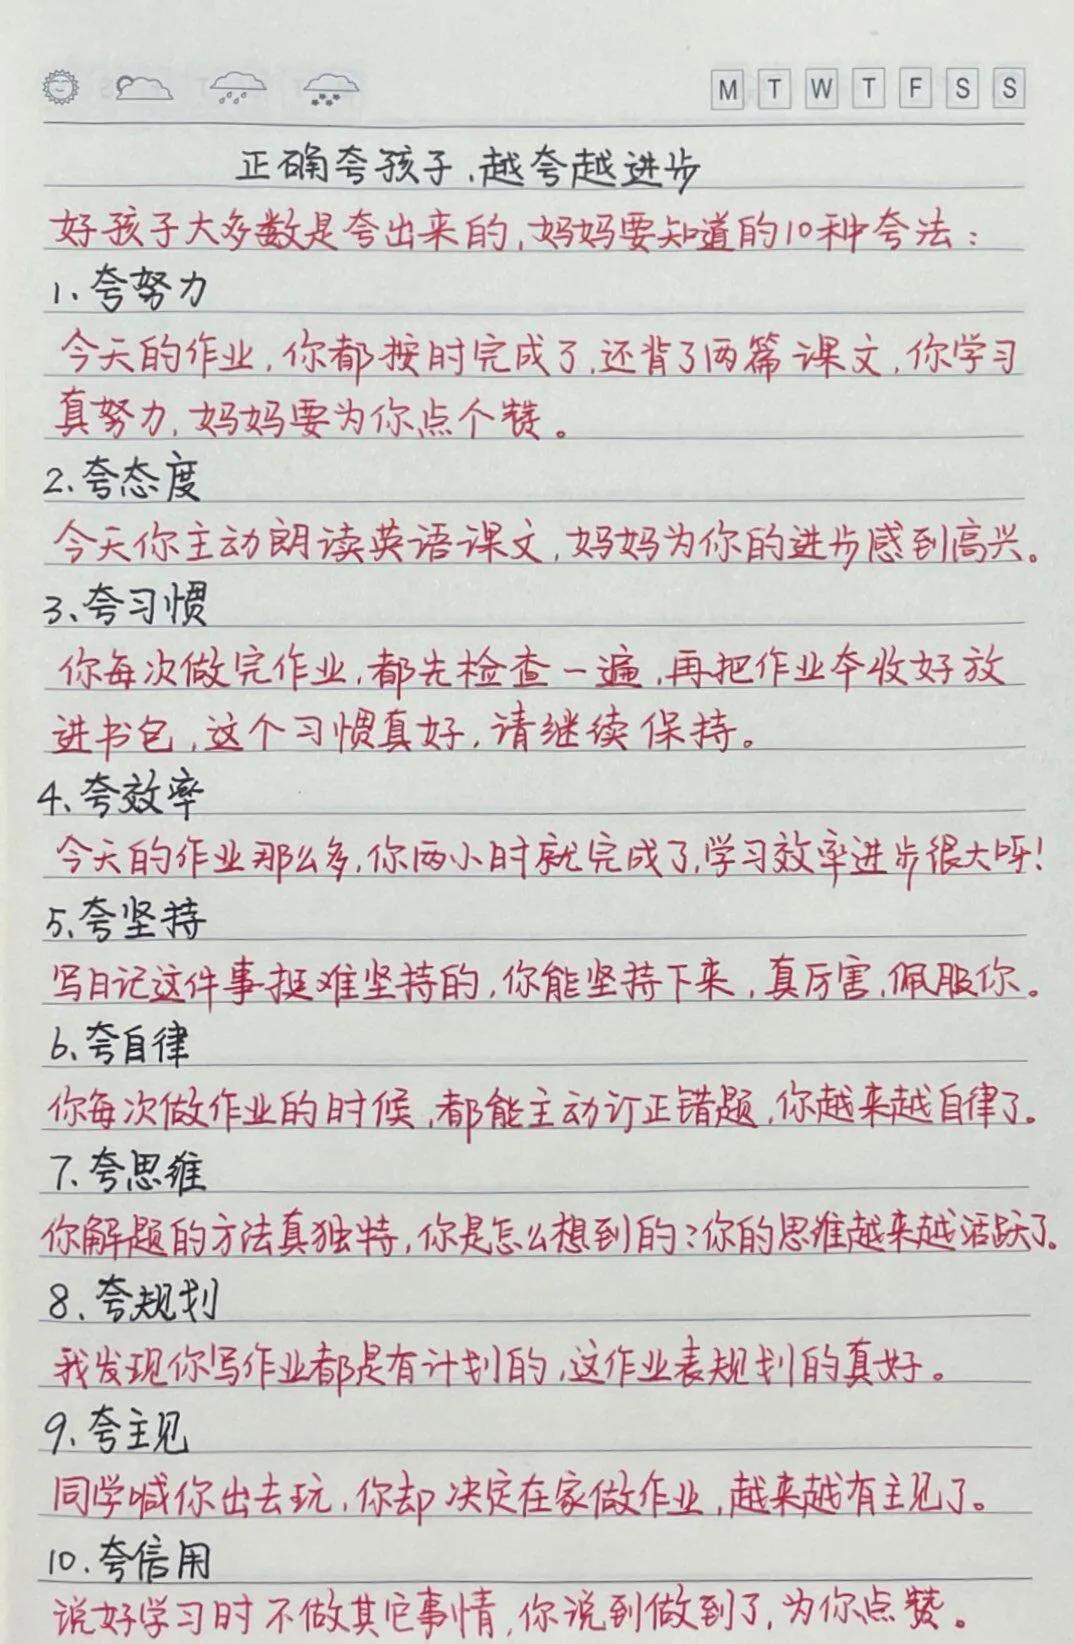 M T W T F S S
正确夸孩子,越夸越进步
好孩子大多数是夸出来的,妈妈要知道的10种夸法:
1、夸努力
今天的作业,你都按时完成了,还背了两篇课文,你学习
真努力,妈妈要为你点个赞。
2、夸态度
今天你主动朗读英语课文,妈妈为你的进步感到高兴。
3、夸习惯
你每次做完作业,都先检查一遍,再把作业本收好放
进书包,这个习惯真好,请继续保持。
4、夸效率
今天的作业那么多,你两小时就完成了,学习效率进步很大呀!
5、夸坚持
写日记这件事挺难坚持的,你能坚持下来,真厉害,佩服你。
6、夸自律
你每次做作业的时候,都能主动订正错题,你越来越自律了。
7、夸思维
你解题的方法真独特,你是怎么想到的?你的思维越来越活跃了。
8、夸规划
我发现你写作业都是有计划的,这作业表规划的真好。
9、夸主见
同学喊你出去玩,你却决定在家做作业,越来越有主见了。
10、夸信用
说好学习时不做其它事情,你说到做到了,为你点赞。